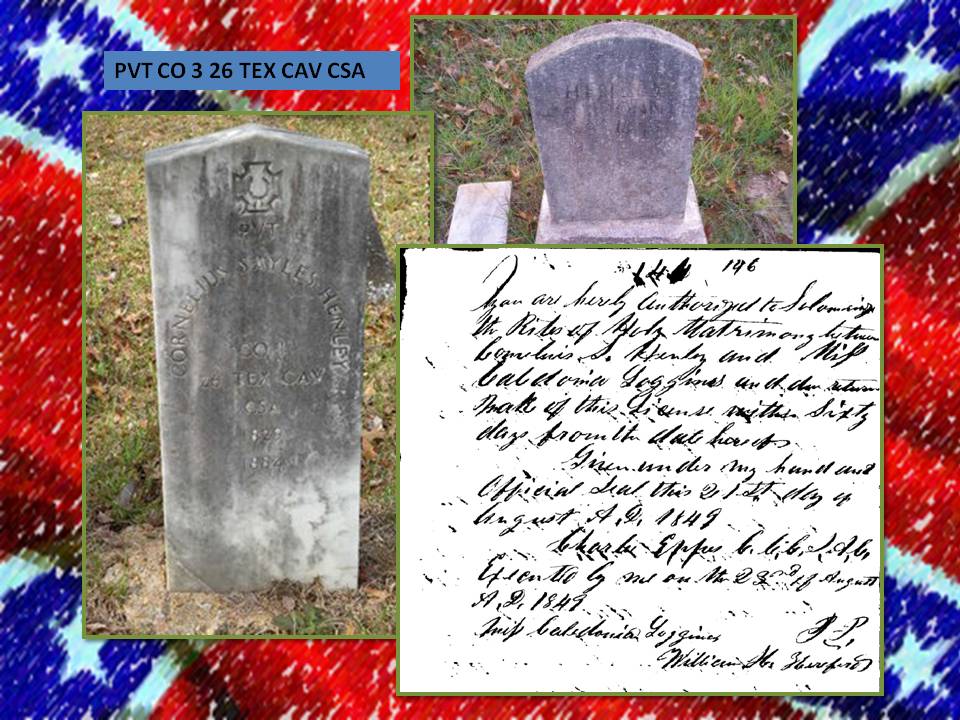 PVT CO 3 26 TEX CAV CSA
HENLEY
PVT
CORNELIUS SAYLES HENLEY
CO
26 TEX CAV
CSA
144 196
You are hereby authorized to Solominize
the Rites of Holy Matrimony between
Corneluis S. Henley and Miss
Caledonia Loggins and due return
Make of this License within Sixty
days from the date hereof
Given under my hand and
Official Seal this 21st day of
August A.D. 1849
Charles Eppes C.C.C.
Executed by me on the 23rd of August
A.D. 1849
Miss Caledonia Loggins
William